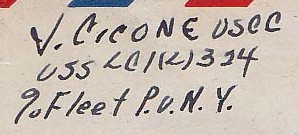 V. CICONE USCG
USS LCI(L) 324
℅ Fleet P.O. N.Y.